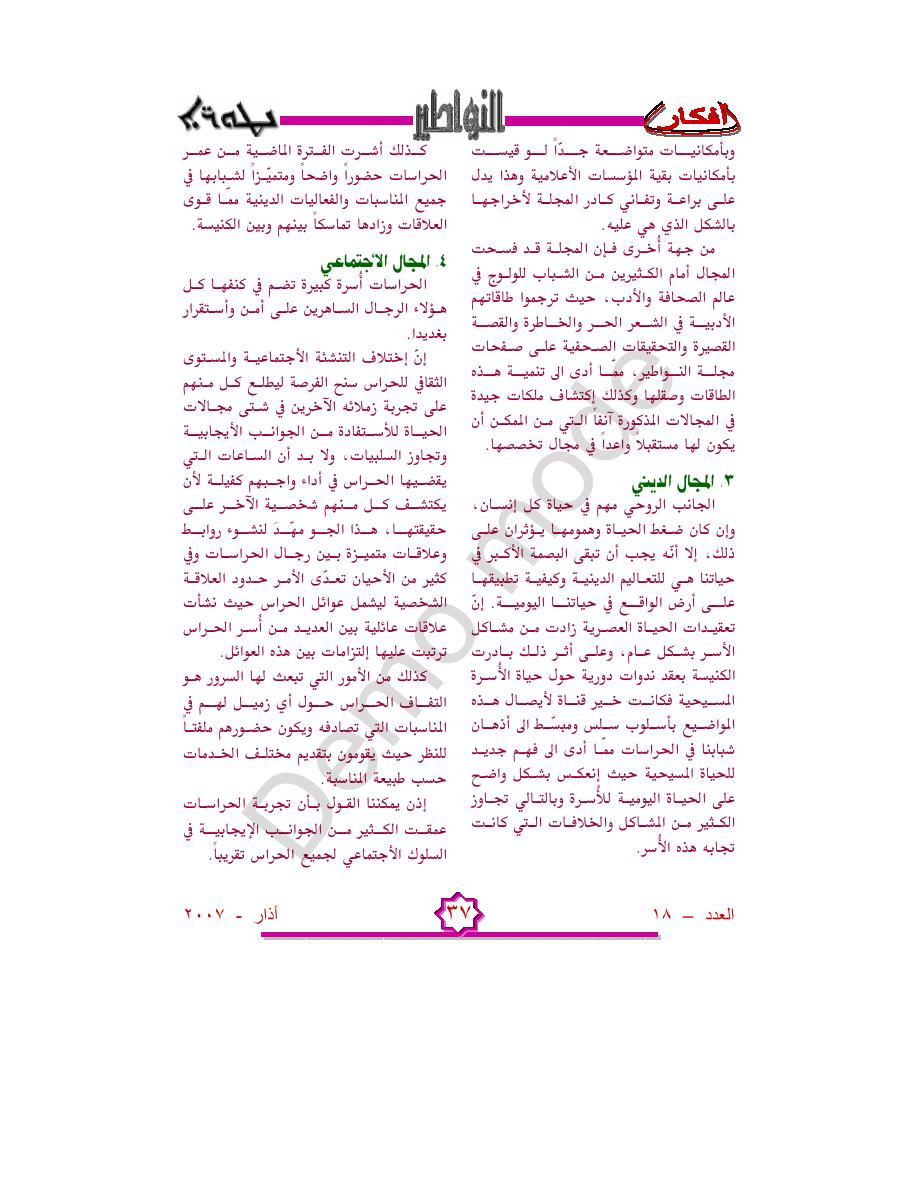 افكار
النواطير
وبأمكانيات متواضعة جداً لو قيست
بأمكانيات بقية المؤسسات الأعلامية وهذا يدل
على براعة وتفاني كادر المجلة لأخراجها
بالشكل الذي هي عليه.
من جهة أُخرى فإن المجلة قد فسحت
المجال أمام الكثيرين من الشباب للولوج في
عالم الصحافة والأدب، حيث ترجموا طاقاتهم
الأدبية في الشعر الحر والخاطرة والقصة
القصيرة والتحقيقات الصحفية على صفحات
مجلة النواطير، ممّا أدى الى تنمية هذه
الطاقات وصقلها وكذلك إكتشاف ملكات جيدة
في المجالات المذكورة آنفاً التي من الممكن أن
يكون لها مستقبلاً واعداً في مجال تخصصها.
٣. المجال الديني
الجانب الروحي مهم في حياة كل إنسان،
وإن كان ضغط الحياة وهمومها يؤثران على
ذلك، إلا أنّه يجب أن تبقى البصمة الأكبر في
حياتنا هي للتعاليم الدينية وكيفية تطبيقها
على أرض الواقع في حياتنا اليومية. إنّ
تعقيدات الحياة العصرية زادت من مشاكل
الأسر بشكل عام، وعلى أثر ذلك بادرت
الكنيسة بعقد ندوات دورية حول حياة الأُسرة
المسيحية فكانت خير قناة لأيصال هذه
المواضيع بأسلوب سلس ومبسّط الى أذهان
شبابنا في الحراسات ممّا أدى الى فهم جديد
للحياة المسيحية حيث إنعكس بشكل واضح
على الحياة اليومية للأُسرة وبالتالي تجاوز
الكثير من المشاكل والخلافات التي كانت
تجابه هذه الأُسر.
كذلك أشرت الفترة الماضية من عمر
الحراسات حضوراً واضحاً ومتميّزاً لشبابها في
جميع المناسبات والفعاليات الدينية ممّا قوى
العلاقات وزادها تماسكاً بينهم وبين الكنيسة.
٤. المجال الاجتماعي
الحراسات أُسرة كبيرة تضم في كنفها كل
هؤلاء الرجال الساهرين على أمن وأستقرار
بغديدا.
إنّ إختلاف التنشئة الأجتماعية والمستوى
الثقافي للحراس سنح الفرصة ليطلع كل منهم
على تجربة زملائه الآخرين في شتى مجالات
الحياة للأستفادة من الجوانب الأيجابية
وتجاوز السلبيات، ولا بد أن الساعات التي
يقضيها الحراس في أداء واجبهم كفيلة لأن
يكتشف كل منهم شخصية الآخر على
حقيقتها، هذا الجو مهّدَ لنشوء روابط
وعلاقات متميزة بين رجال الحراسات وفي
كثير من الأحيان تعدّى الأمر حدود العلاقة
الشخصية ليشمل عوائل الحراس حيث نشأت
علاقات عائلية بين العديد من أُسر الحراس
ترتبت عليها إلتزامات بين هذه العوائل.
كذلك من الأمور التي تبعث لها السرور هو
التفاف الحراس حول أي زميل لهم في
المناسبات التي تصادفه ويكون حضورهم ملفتاً
للنظر حيث يقومون بتقديم مختلف الخدمات
حسب طبيعة المناسبة.
إذن يمكننا القول بأن تجربة الحراسات
عمقت الكثير من الجوانب الإيجابية في
السلوك الأجتماعي لجميع الحراس تقريباً.
العدد – ١٨
٣٧
أذار - ٢٠٠٧
Demo mode